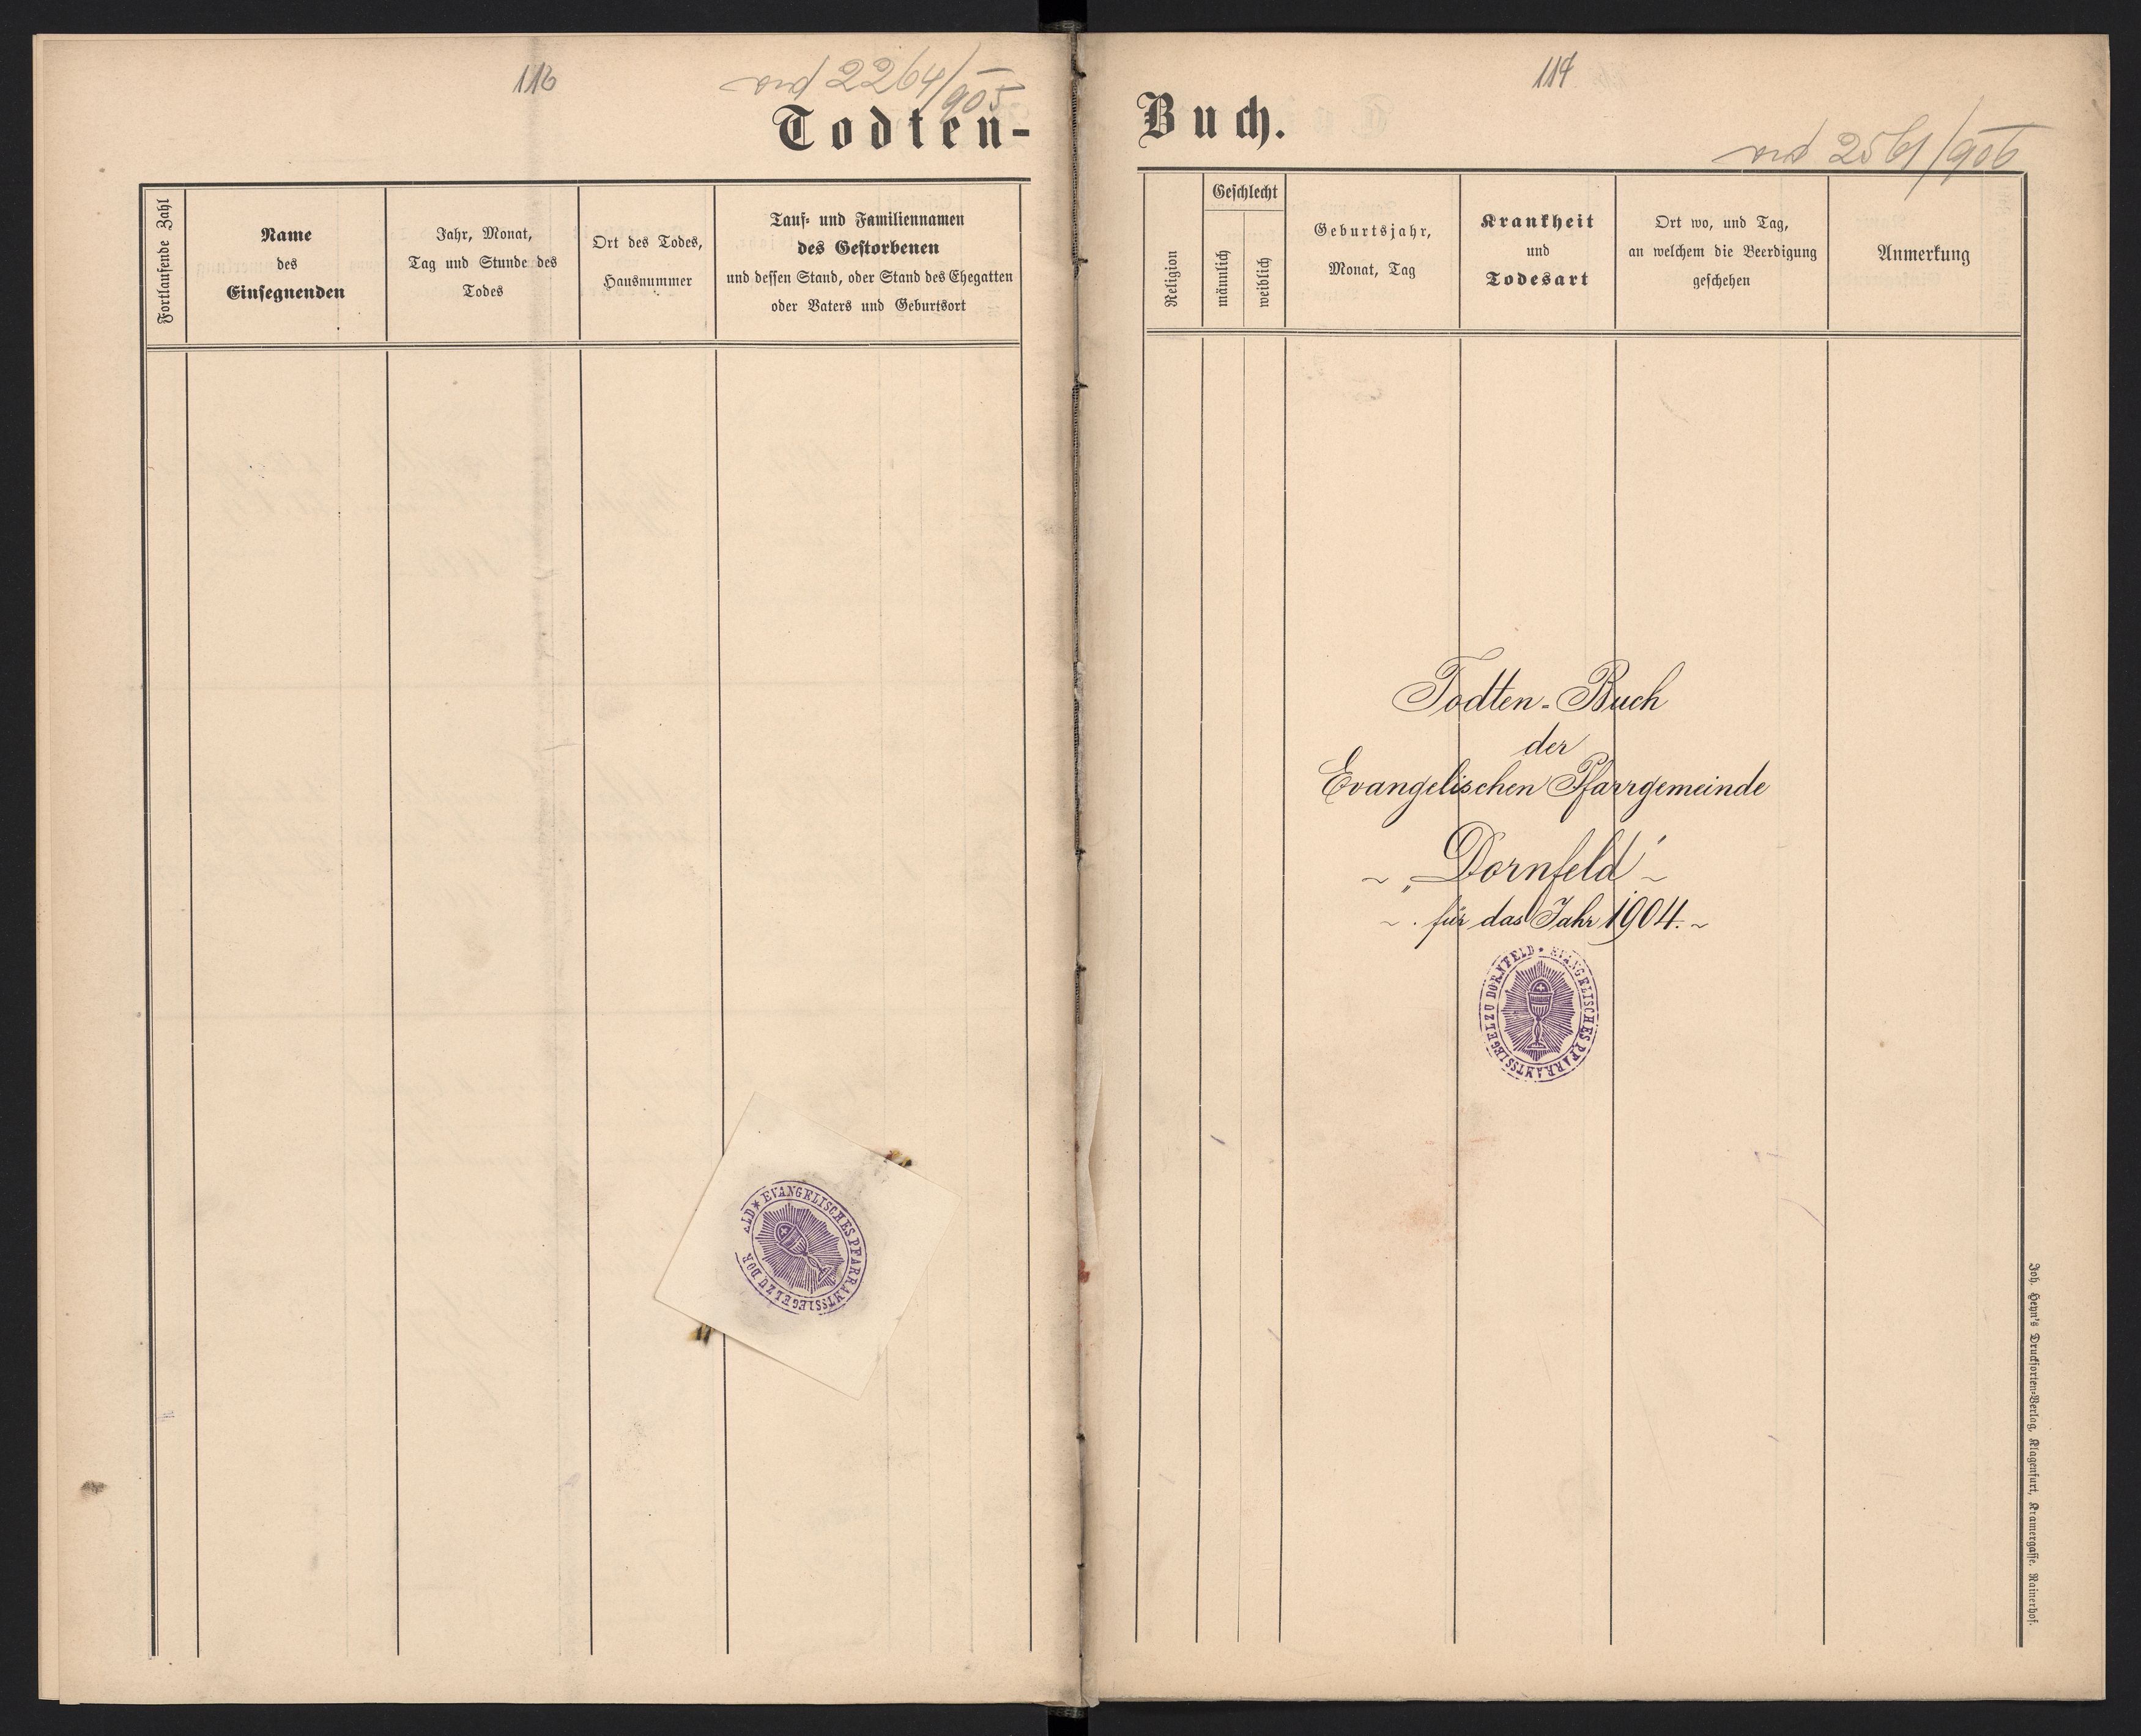 113
ad 2264/905
Todten-
Fortlaufende Zahl
Name
des
Einsegnenden
Jahr, Monat,
Tag und Stunde des
Todes
Ort des Todes,
Hausnummer
Tauf- und Familiennamen
des Gestorbenen
und dessen Stand, oder Stand des Ehegatten
oder Vaters und Geburtsort
EVANGELISCHES PFARRAMTSSIEGEL ZU DOR LD
114
Buch.
ad 2561/906
Religion
Geschlecht
männlich
weiblich
Geburtsjahr,
Monat, Tag
Krankheit
und
Todesart
Ort wo, und Tag,
an welchem die Beerdigung
geschehen
Anmerkung
Todten-Buch
der
Evangelischen Pfarrgemeinde
~ „Dornfeld" ~
~. für das Jahr 1904. ~
EVANGELISCHES PFARRAMTSSIEGEL ZU DORNFELD
Joh. Heyn's Drucksorten-Verlag, Klagenfurt, Kramergasse, Rainerhof.